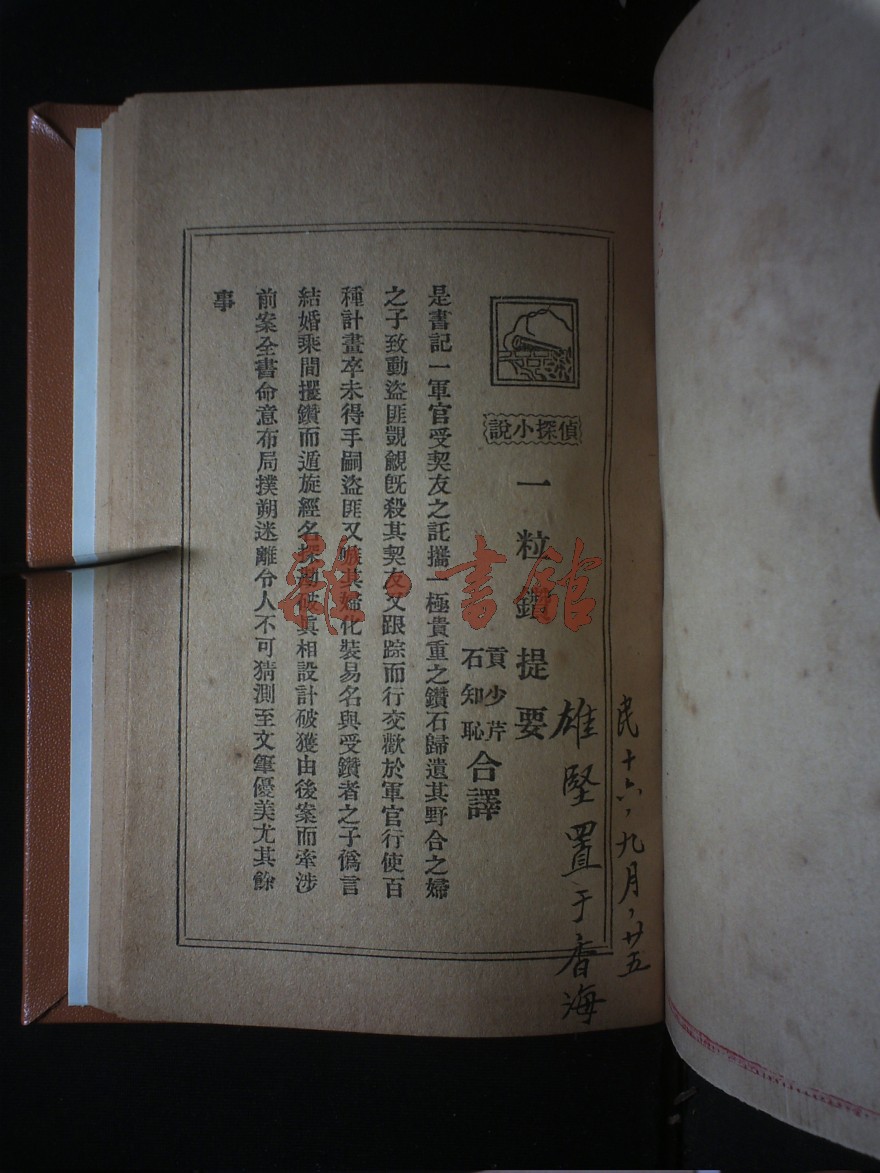 民十六，九月，廿五
雄堅置于香海
偵探小說
一粒鑽提要
貢少芹
石知恥
合譯
是書記一軍官受契友之託攜一極貴重之鑽石歸遺其野合之婦
之子致動盜匪覬覦旣殺其契友又跟踪而行交歡於軍官行使百
種計畫卒未得手嗣盜匪又嗾其婦化裝易名與受鑽者之子僞言
結婚乘間攫鑽而遁旋經名探勘破眞相設計破獲由後案而牽涉
前案全書命意布局撲朔迷離令人不可猜測至文筆優美尤其餘
事
雜·書館